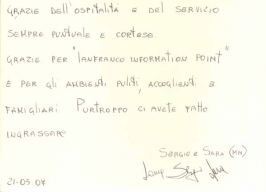 GRAZIE DELL'OSPITALITÀ E DEL SERVIZIO
SEMPRE PUNTUALE E CORTESE.
GRAZIE PER "LANFRANCO INFORMATION POINT"
E PER GLI AMBIENTI PULITI, ACCOGLIENTI E
FAMIGLIARI. PURTROPPO CI AVETE FATTO
INGRASSARE
SERGIO E SARA (MN)
21-05-07